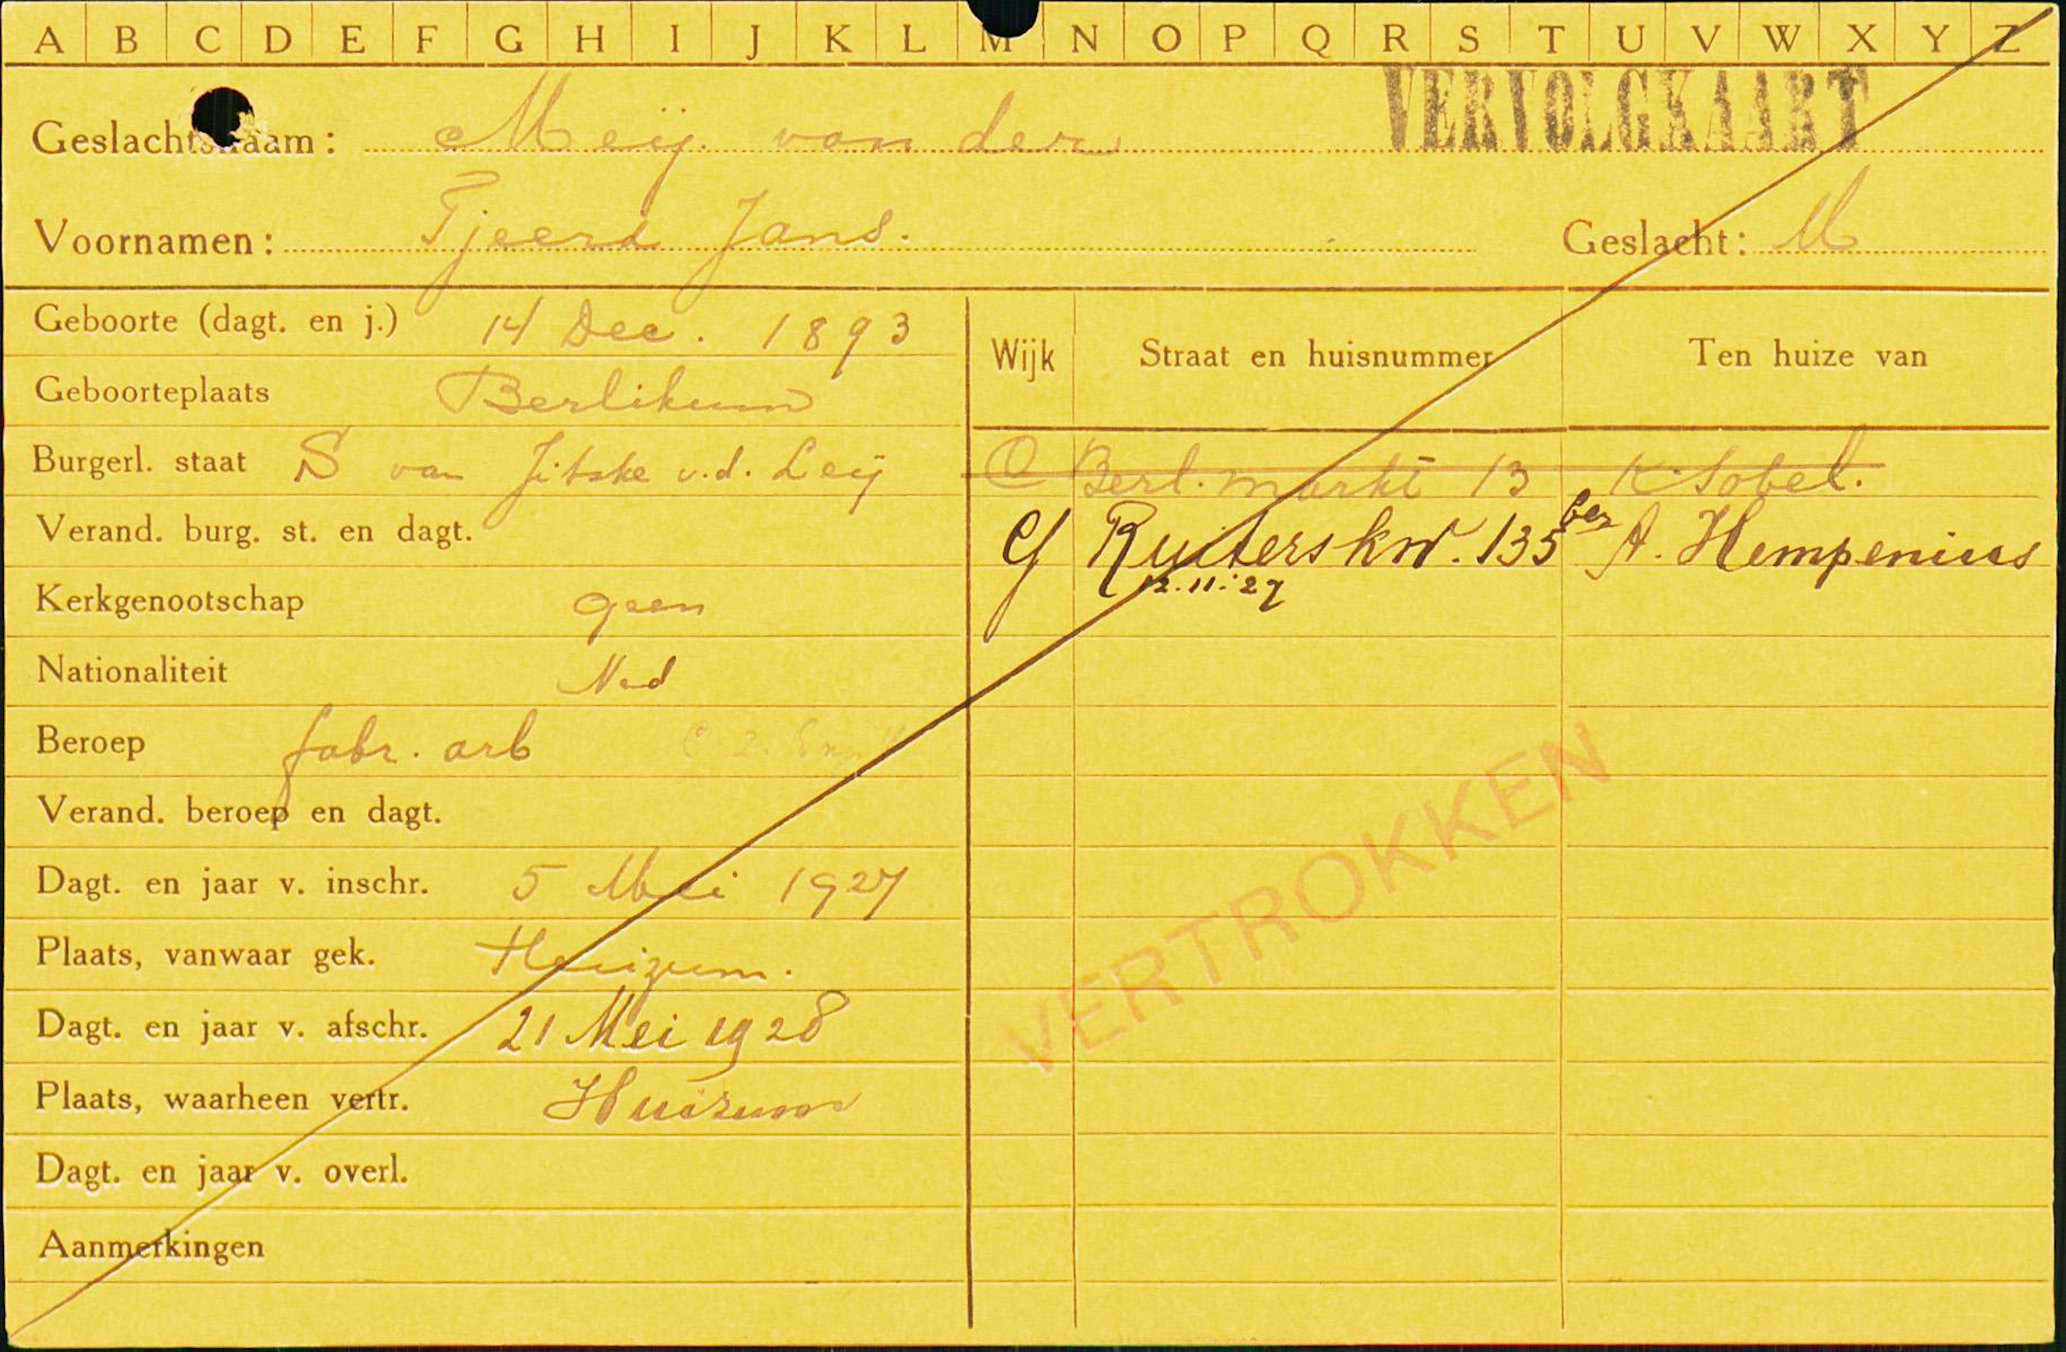 A B C D E F G H I J K L M N O P Q R S T U V W X Y Z
VERVOLGKAART
Geslachtsnaam: Meij. van der
Voornamen: Tjeerd Jans. Geslacht: M
Geboorte (dagt. en j.) 14 Dec. 1893
Geboorteplaats Berlikum
Burgerl. staat S van Jitske v.d. Leij
Verand. burg. st. en dagt.
Kerkgenootschap geen
Nationaliteit Ned
Beroep fabr. arb
Verand. beroep en dagt.
Dagt. en jaar v. inschr. 5 Mei 1927
Plaats, vanwaar gek. Huizum.
Dagt. en jaar v. afschr. 21 Mei 1928
Plaats, waarheen vertr. Huizum
Dagt. en jaar v. overl.
Aanmerkingen
Wijk Straat en huisnummer Ten huize van
C Berl. markt 13 K. Sobel.
G Ruiterskw. 135 ben A. Hempenius
12.11.'27
VERTROKKEN